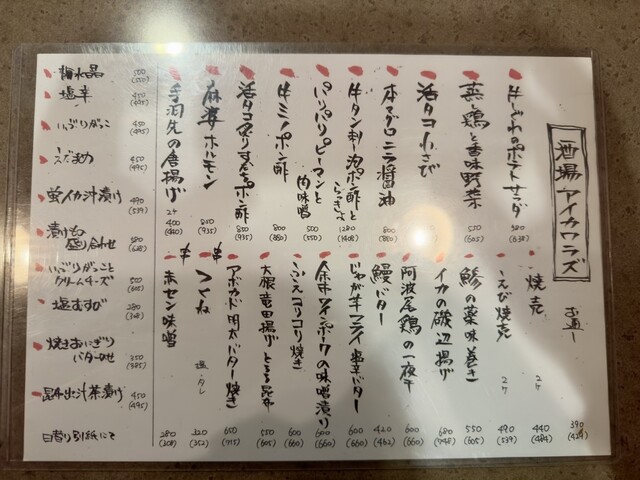 酒場アイカワラズ
お通し 390 (429)
牛しぐれのポテトサラダ 580 (638)
蒸し鶏と香味野菜 550 (605)
活タコわさび
本マグロニラ醤油 800 (880)
牛タン刺し泡ポン酢とらっきょ 1280 (1408)
パリパリピーマンと肉味噌 500 (550)
牛ミノポン酢 800 (880)
活タコ炙りすだちポン酢 850 (935)
麻婆ホルモン 850 (935)
手羽先の唐揚げ 2ケ 400 (440)
焼売 2ケ 440 (484)
えび焼売 2ケ 490 (539)
鯵の薬味巻き 550 (605)
イカの磯辺揚げ 680 (748)
阿波尾鶏の一夜干 600 (660)
鰻バター 420 (462)
じゃが芋フライ 塩辛バター 600 (660)
ワインポークの味噌漬け 600 (660)
コリコリ焼き 600 (660)
大根竜田揚げとろろ昆布 550 (605)
アボカド明太バター焼き 650 (715)
つくね 塩・タレ 320 (352)
赤セン味噌 280 (308)
梅水晶
塩辛
いぶりがっこ 450 (495)
えだまめ 450 (495)
蛍イカ汁漬け 490 (539)
漬けもの盛り合わせ
いぶりがっことクリームチーズ
塩むすび 280 (308)
焼きおにぎりバターのせ 350 (385)
昆布出汁茶漬け 450 (495)
日替り別紙にて